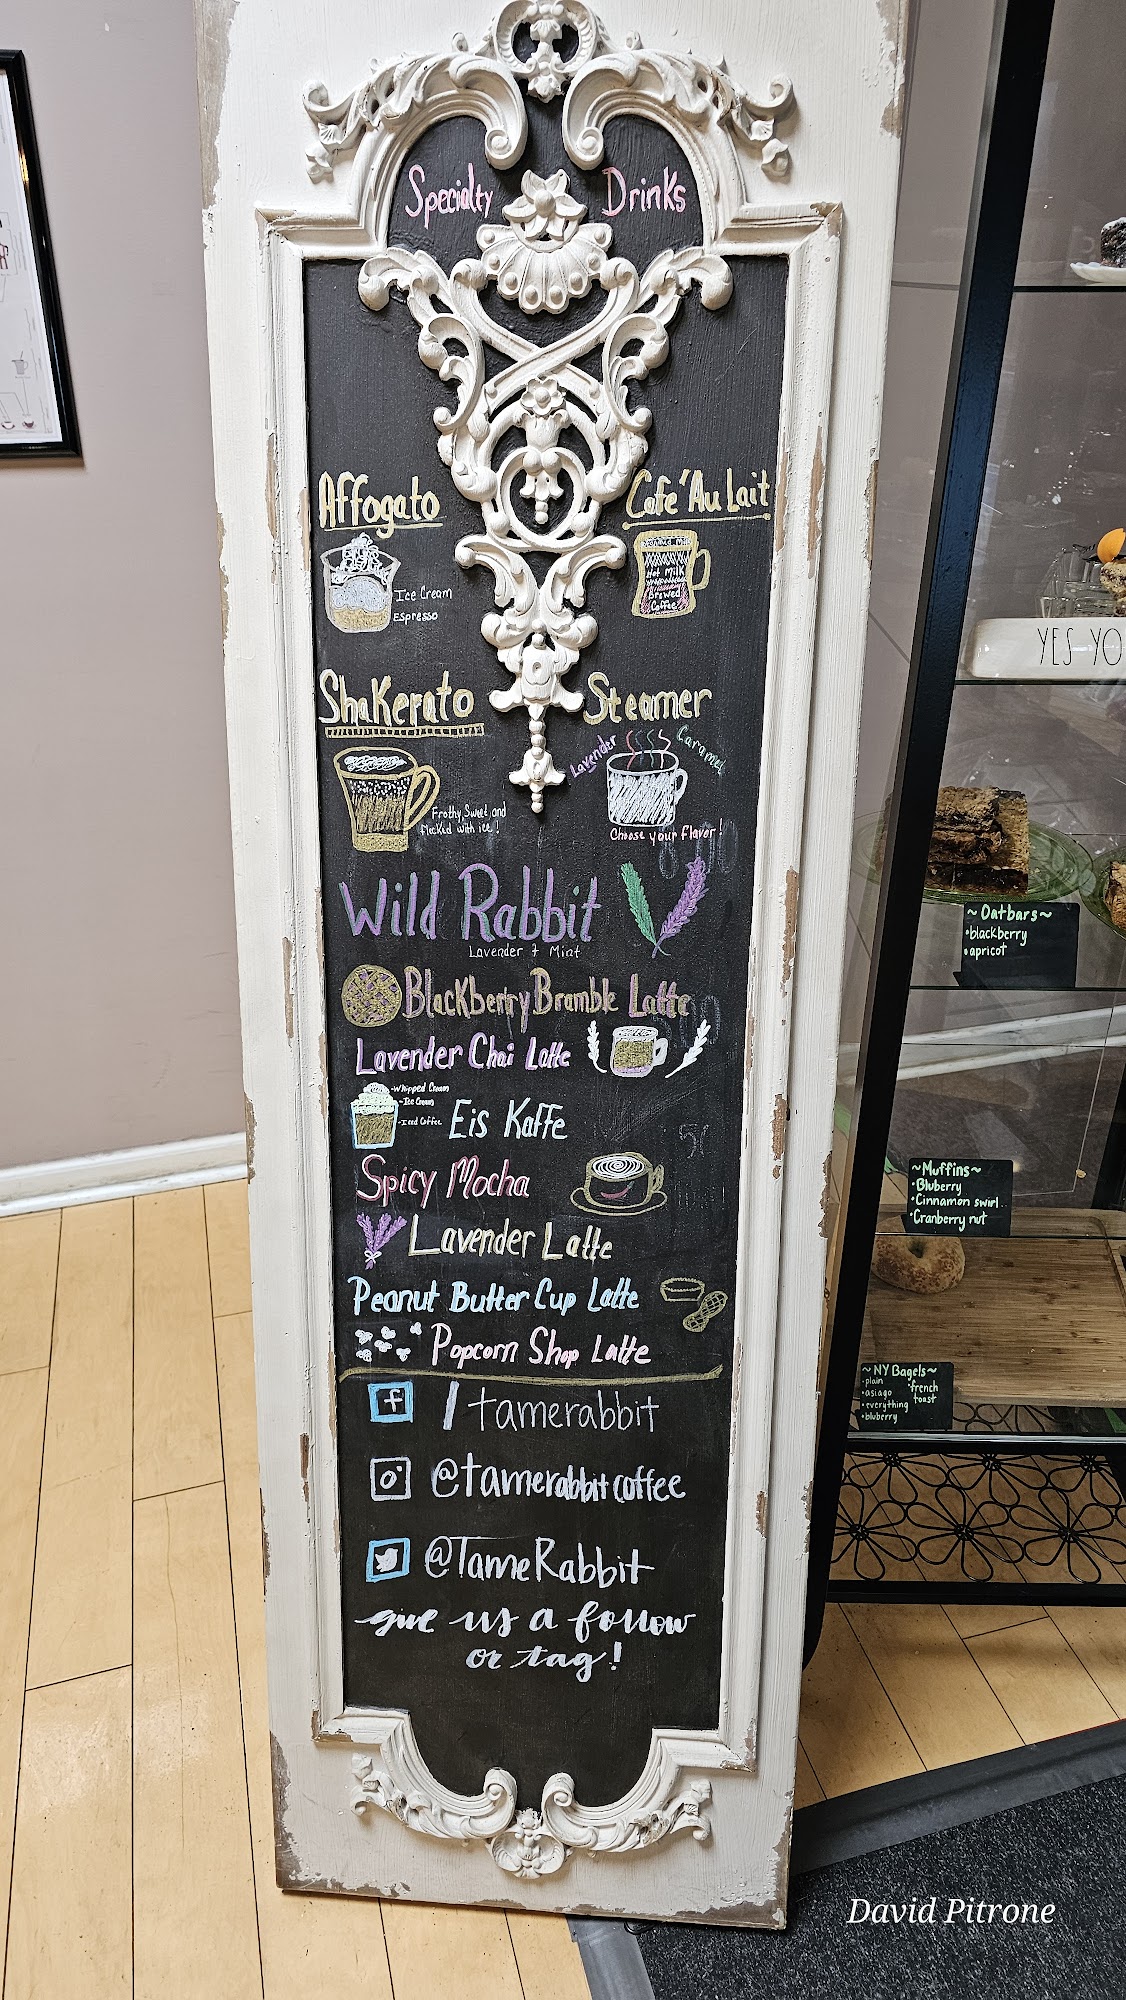 Specialty Drinks
Affogato
Ice Cream
Espresso
Cafe' Au Lait
Hot Milk
Brewed
Coffee
Shakerato
Frothy, Sweet, and
flecked with ice!
Steamer
Lavender
Caramel
Choose your flavor!
Wild Rabbit
Lavender & Mint
Blackberry Bramble Latte
Lavender Chai Latte
-Whipped Cream
-Ice Cream
-Iced Coffee
Eis Kaffe
Spicy Mocha
Lavender Latte
Peanut Butter Cup Latte
Popcorn Shop Latte
f /tamerabbit
@tamerabbitcoffee
@TameRabbit
give us a follow
or tag!
YES YO
~Oatbars~
•blackberry
•apricot
~Muffins~
•Bluberry
•Cinnamon swirl
•Cranberry nut
~NY Bagels~
•plain
•asiago
•everything
•bluberry
•french
toast
David Pitrone